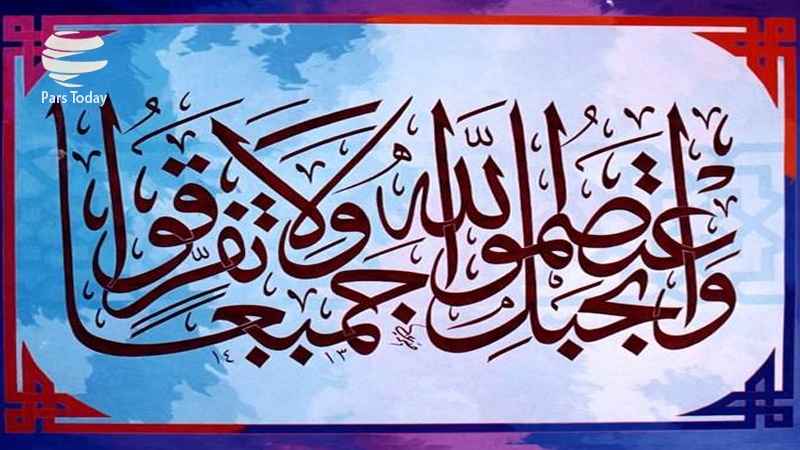 Pars Today
واعتصموا بحبل الله جميعا ولا تفرقوا
١٤١٣